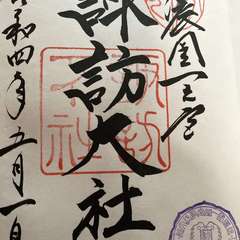 濃國一之宮
諏訪大社
令和四年五月一日